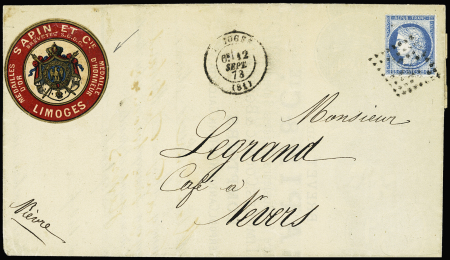 SAPIN ET Cie
BREVETÉS S.G.D.G.
MÉDAILLES D'OR
MÉDAILLE D'HONNEUR
LIMOGES
LIMOGES
12
SEPT
73
(81)
REPUB FRANC
Monsieur
Legrand
Café à
Nevers
Nièvre